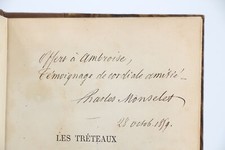 Offert à Ambroise,
Témoignage de cordiale amitié
Charles Monselet
28 octob. 1859.
LES TRÉTEAUX